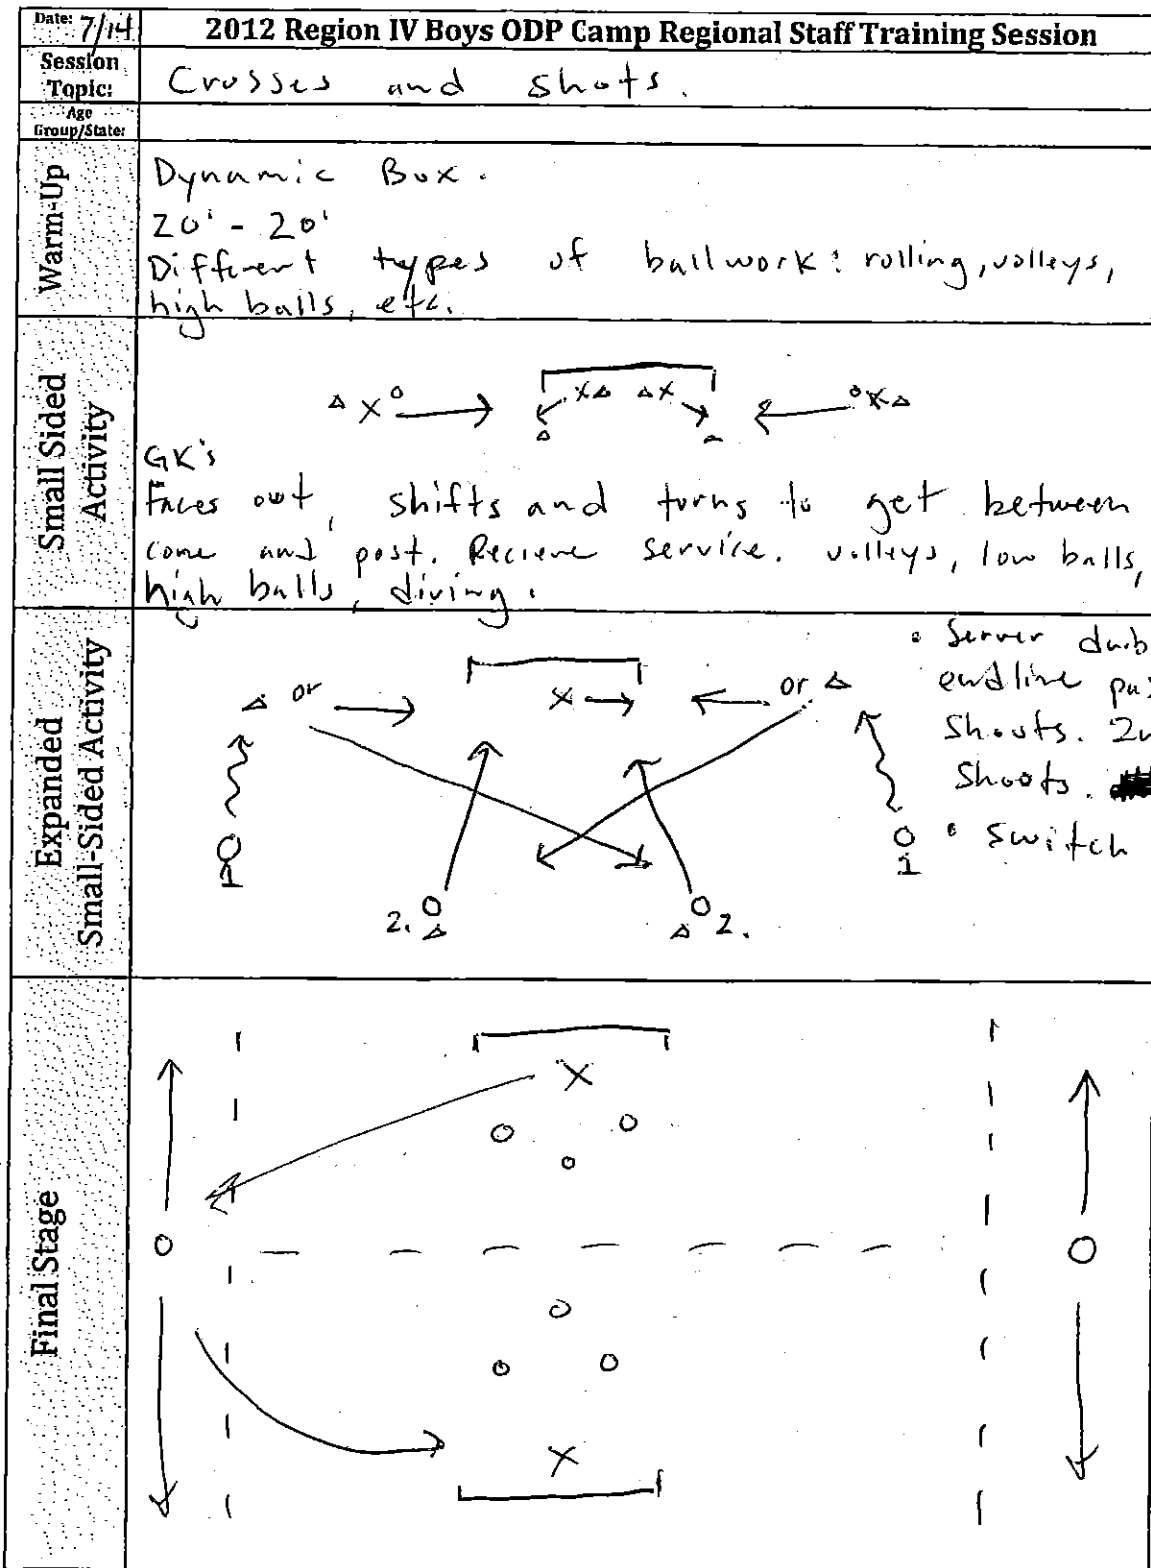 Date: 7/14
2012 Region IV Boys ODP Camp Regional Staff Training Session
Session Topic:
Crosses and shots.
Age Group/State:
Warm-Up
Dynamic Box.
20' - 20'
Different types of ballwork: rolling, volleys,
high balls, etc.
Small Sided
Activity
GK's
Faces out, shifts and turns to get between
cone and post. Recieve service. volleys, low balls,
high balls, diving.
Expanded
Small-Sided Activity
or
or
• Server
endline
Shoots.
Shoots.
• Switch
1
1
2.
2.
Final Stage